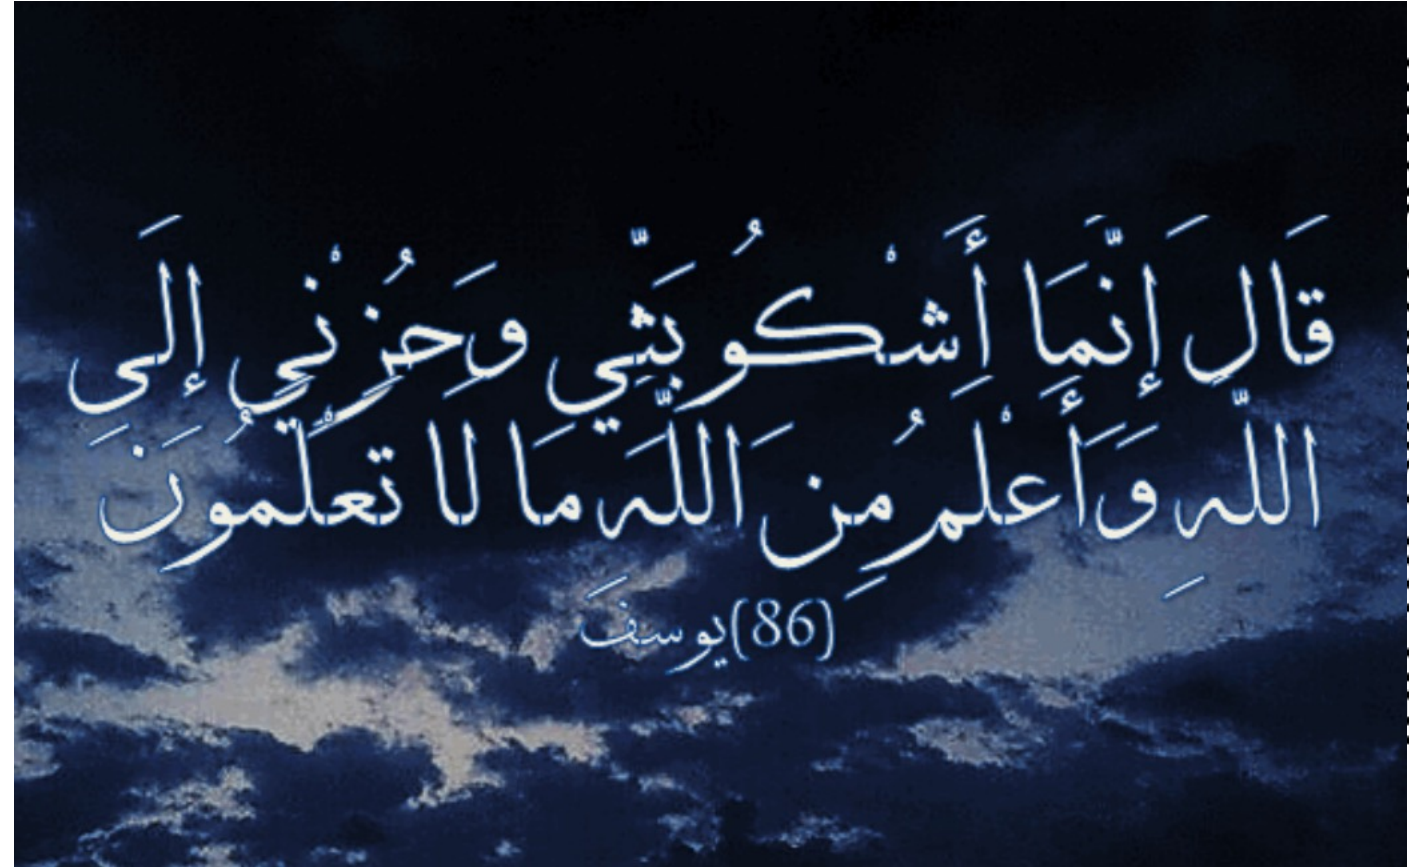 قَالَ إِنَّمَا أَشْكُو بَثِّي وَحُزْنِي إِلَى
اللَّهِ وَأَعْلَمُ مِنَ اللَّهِ مَا لَا تَعْلَمُونَ
(86)يوسف